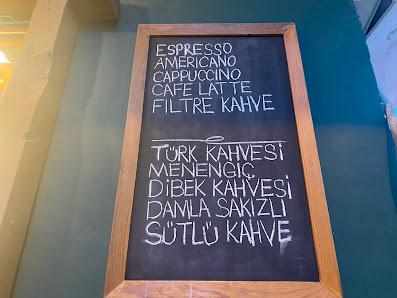 ESPRESSO
AMERICANO
CAPPUCCINO
CAFE LATTE
FILTRE KAHVE
TÜRK KAHVESİ
MENENGİÇ
DİBEK KAHVESİ
DAMLA SAKIZLI
SÜTLÜ KAHVE